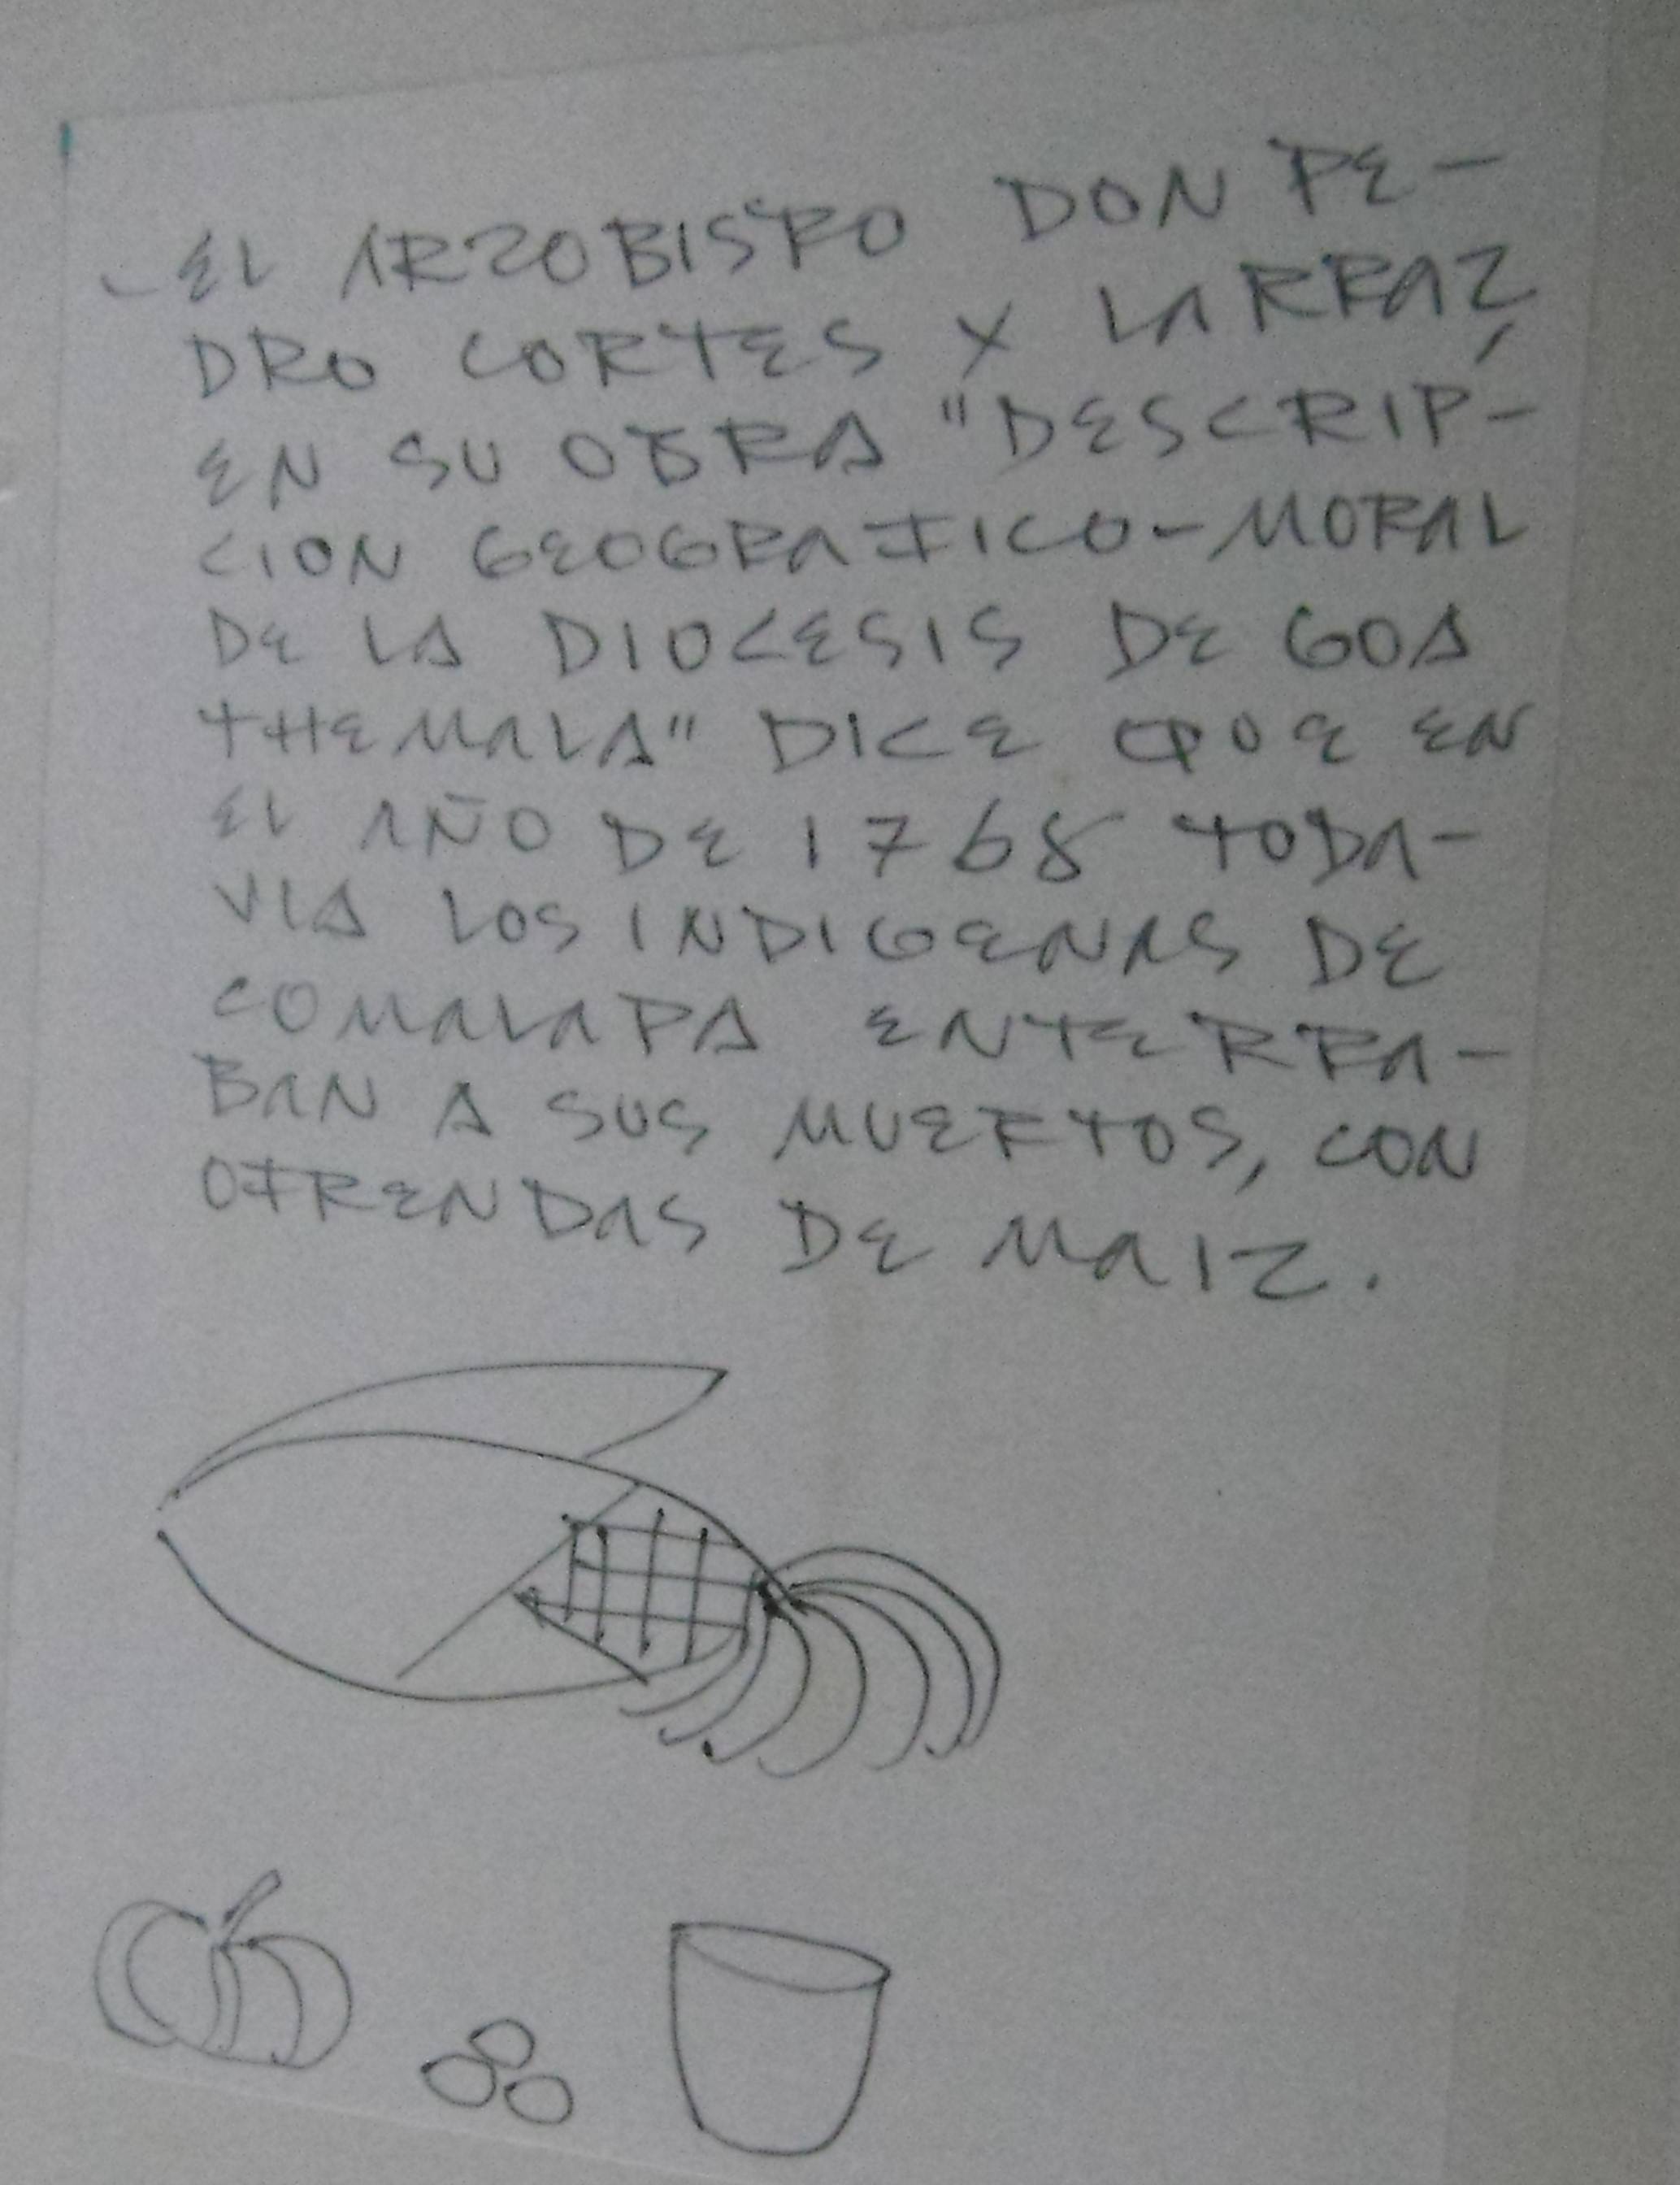 - EL ARZOBISPO DON PE-
DRO CORTES Y LARRAZ,
EN SU OBRA "DESCRIP-
CION GEOGRAFICO-MORAL
DE LA DIOCESIS DE GOA
THEMALA" DICE QUE EN
EL AÑO DE 1768 TODA-
VIA LOS INDIGENAS DE
COMALAPA ENTERRA-
BAN A SUS MUERTOS, CON
OFRENDAS DE MAIZ.